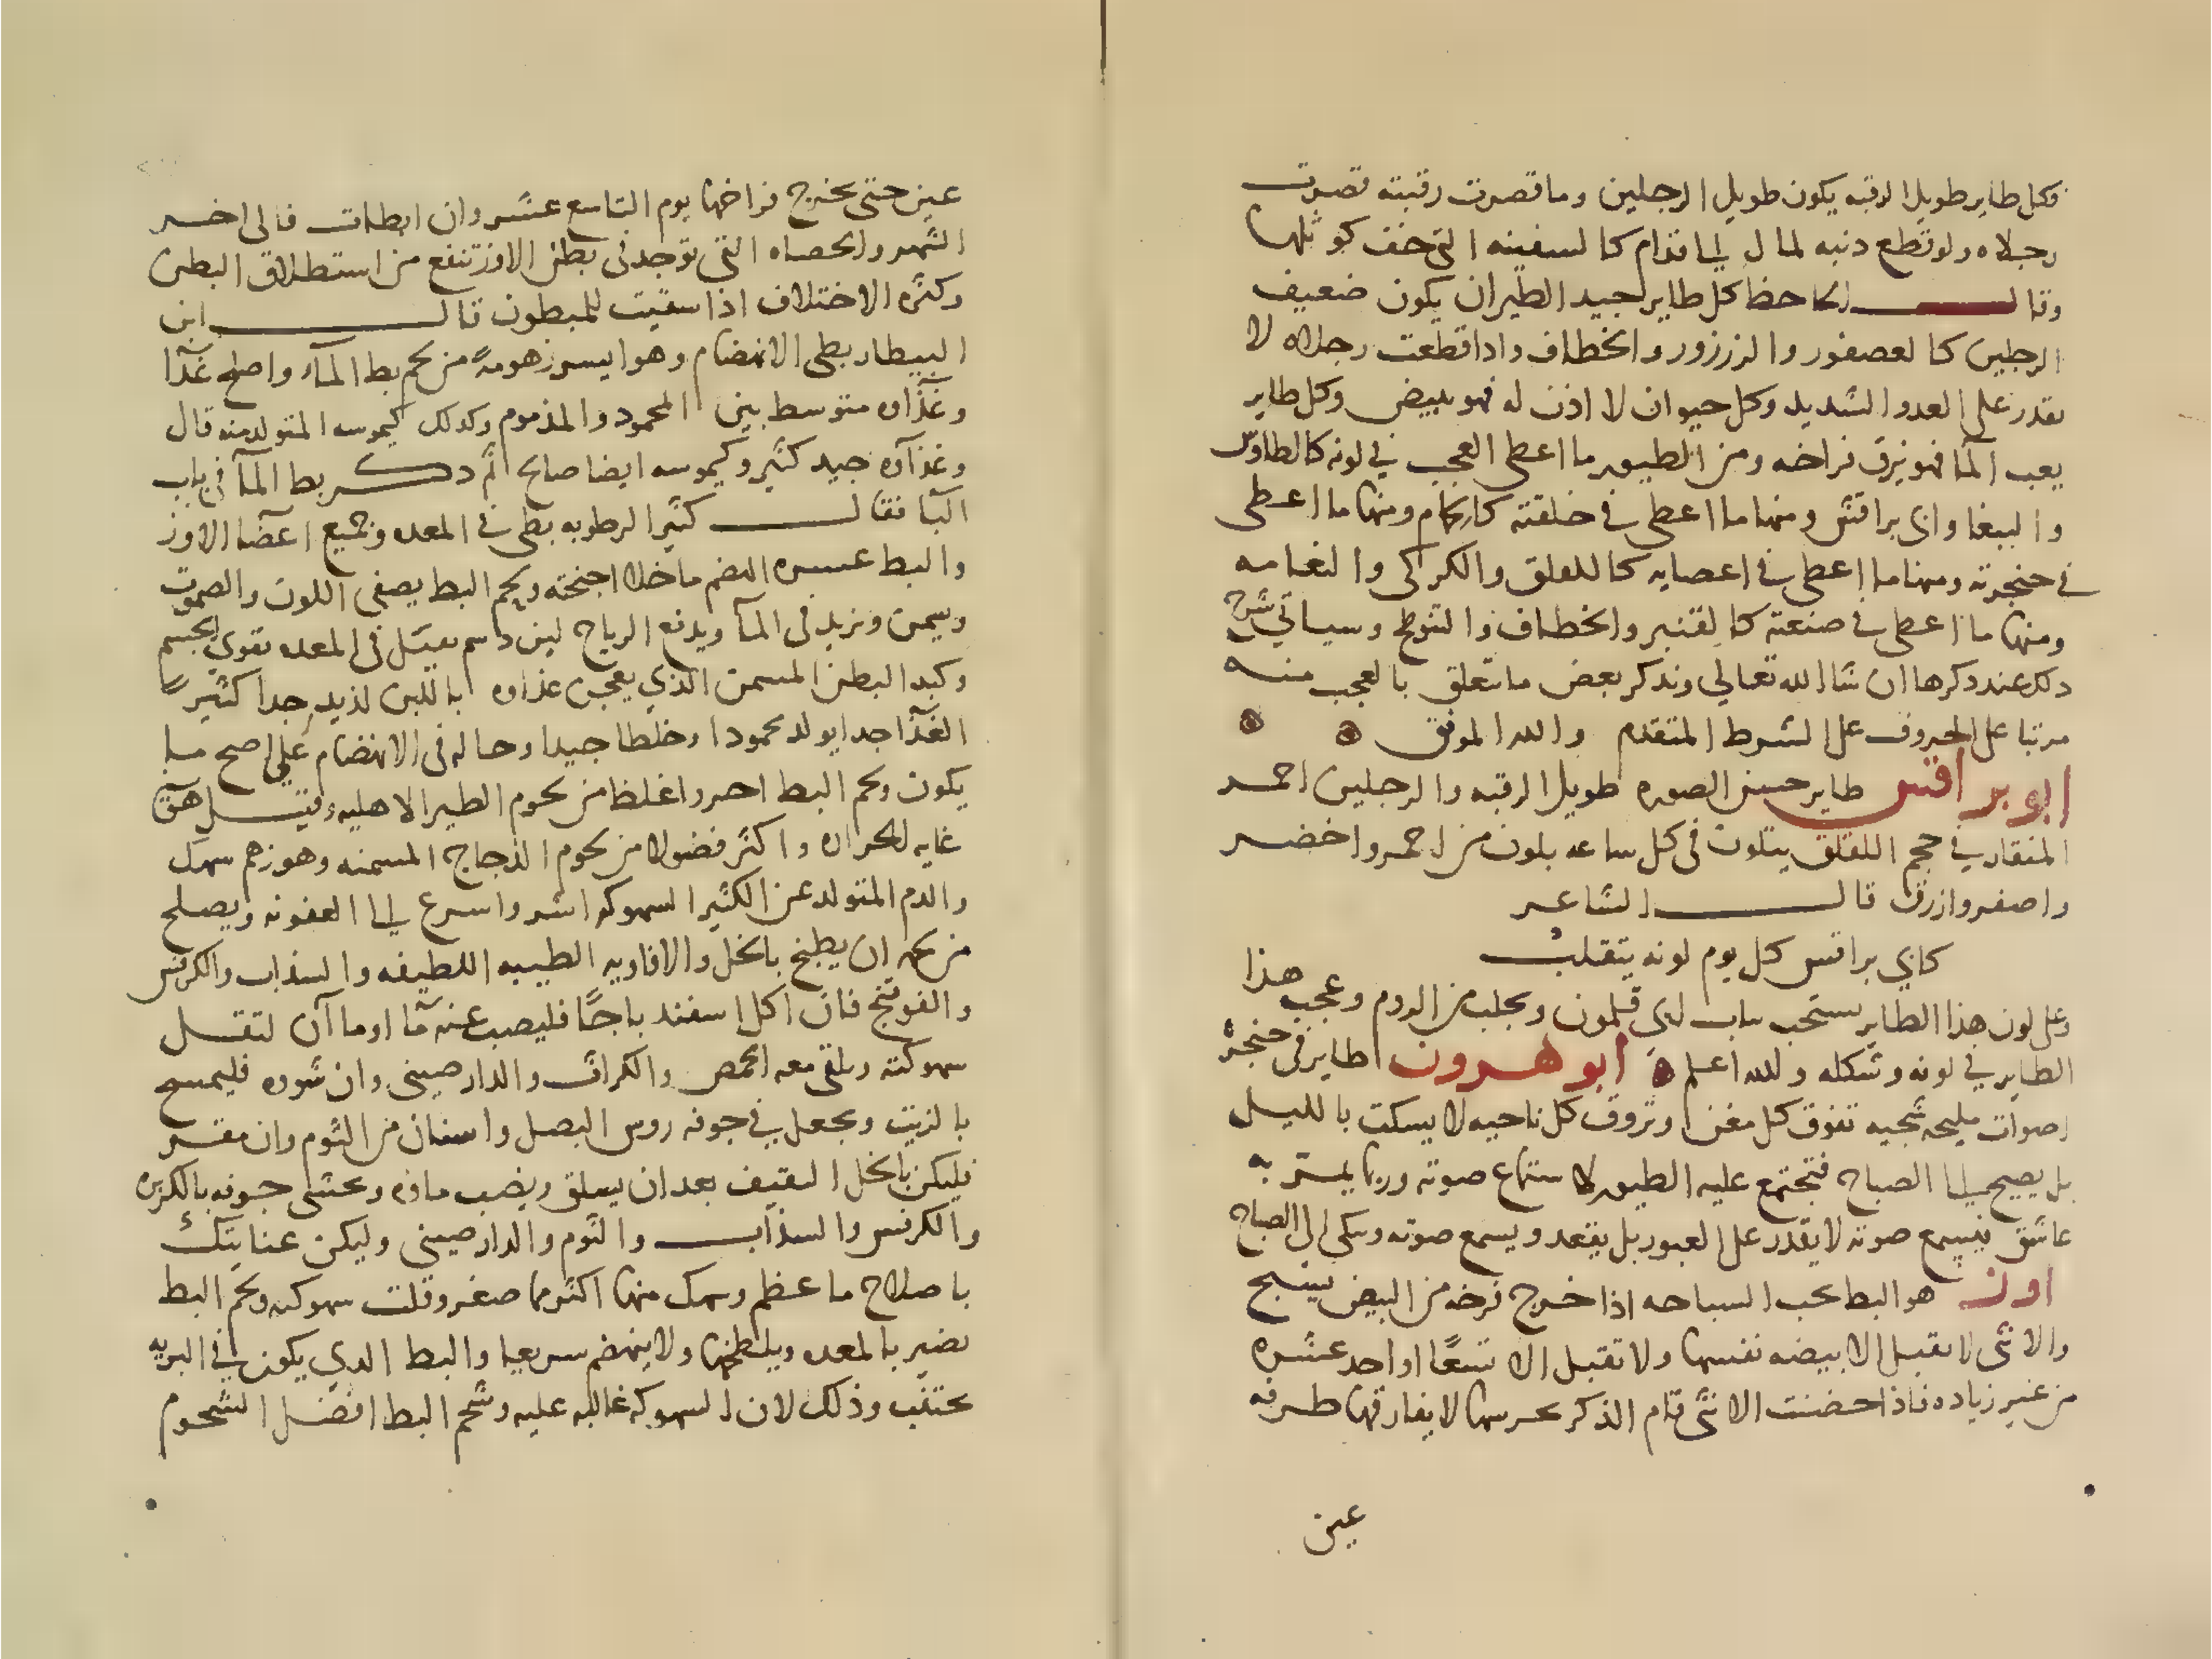 فكل طاير طويل الرقبه يكون طويل الرجلين وما قصرت رقبته قصرت
رجلاه ولو قطع دنبه لمال الى اقدام كالسفينه التى خف كوثلها
وقال الجاحظ كل طاير لجيد الطيران يكون ضعيف
الرجلين كالعصفور والزرزور والخطاف واداقطعت رجلاه لا
يقدر على العدو الشديد وكل حيوان لا اذن له فهو يبيض وكل طاير
يعب الما فهو يزق فراخه ومن الطيور ما اعطى العجب في لونه كالطاوس
والببغا وابى براقش ومنها ما اعطى في خلقته كالحمام ومنها ما اعطى
في حنجرته ومنها ما اعطى في اعضايه كاللقلق والكركى والنعامه
ومنها ما اعطى في صنعته كالقنبر والخطاف والتنوط وسياتي شرح
دلك عند دكرها ان شا الله تعالي وندكر بعض ما يتعلق بالعجب منه
مرتبا على الحروف على الشرط المتقدم والله الموفق
ابو براقش طاير حسن الصوره طويل الرقبه والرجلين احمر
المنقار في حجم اللقلق يتلون فى كل ساعه بلون من احمر واخضر
واصفر وازرق قال الشاعر
كابي براقش كل يوم لونه يتقلب
وعلى لون هذا الطاير يستحب ثياب ابي قلمون ويجلب من الروم وعجب هذا
الطاير في لونه وشكله والله اعلم ابو هرون طاير فى حنجرته
اصوات مليحه شجيه تفوق كل مغن وتروق كل ناحيه لا يسكت بالليل
بل يصيح الى الصباح فتجتمع عليه الطيور لاستماع صوته وربما يمر به
عاشق فيسمع صوته لا يقدر على العبور بل يقعد ويسمع صوته ويبكى الى الصباح
اوز هو البط يحب السباحه اذا خرج فرخه من البيض يسبح
والانثى لا تقبل الا بيضه نفسها ولا تقبل الا تسعًا او احد عشره
من غير زياده فاذا حضنت الانثى قام الذكر يحرسها لا يفارقها طرفه
عين
عين حتى يخرج فراخها يوم التاسع عشر وان ابطات فالى اخر
الشهر والحصاه التى توجد فى بطن الاوز تنفع من استطلاق البطن
وكثره الاختلاف اذا سقيت للمبطون قال ابن
البيطار بطى الانهضام وهو ايسر زهومةً من لحم بط الماء واصلح غذا
وغذاه متوسط بين المحمود والمذموم وكدلك كيموسه المتولد منه قال
وغذاوه جيد كثير وكيموسه ايضا صالح ثم دكر بط الما في باب
البا فقال كثير الرطوبه بطى في المعده وجميع اعضا الاوز
والبط عسره الهضم ما خلا اجنحته ولحم البط يصفى اللون والصوت
ويسمن ويزيد فى الما ويدفع الرياح لين دسم يعسل فى المعده يقوي الجسم
وكبد البطن المسمن الذي يعجن غذاوه باللبن لذيد جدا كثير
الغذا جدا يولد محمودا وخلطا جيدا وحاله فى الانهضام على اصح ما
يكون ولحم البط احر واغلظ من لحوم الطير الاهليه وقيل هو فى
غايه الحراره واكثر فضولا من لحوم الدجاج المسمنه وهو زهم سهك
والدم المتولد عن الكثير السهوكه اشر واسرع الى العفونه ويصلح
من لحمه ان يطبخ بالخل والافاويه الطيبه اللطيفه والسذاب والكرفس
والفوتنج فان اكل اسفند باجًا فليصب عنه ما او ما آن لتقل
سهوكته ويلقى معه الحمص والكراث والدارصينى وان شوه فليمسح
بالزيت ويجعل في جوفه روس البصل واسنان من الثوم وان مقر
فليكن بالخل الثقيف بعد ان يسلق ويصب ماوه ويحشى جوفه بالكزبره
والكرفس والسذاب والثوم والدارصينى وليكن عنايتك
باصلاح ما عظم وسمك منها اكثر مما صغر وقلت سهوكته ولحم البط
يضير بالمعده ويلطخها ولا ينهضم سريعا والبط الدي يكون في البريه
يجتنب وذلك لان السهوكه غالبه عليه وشحم البط افضل الشحوم